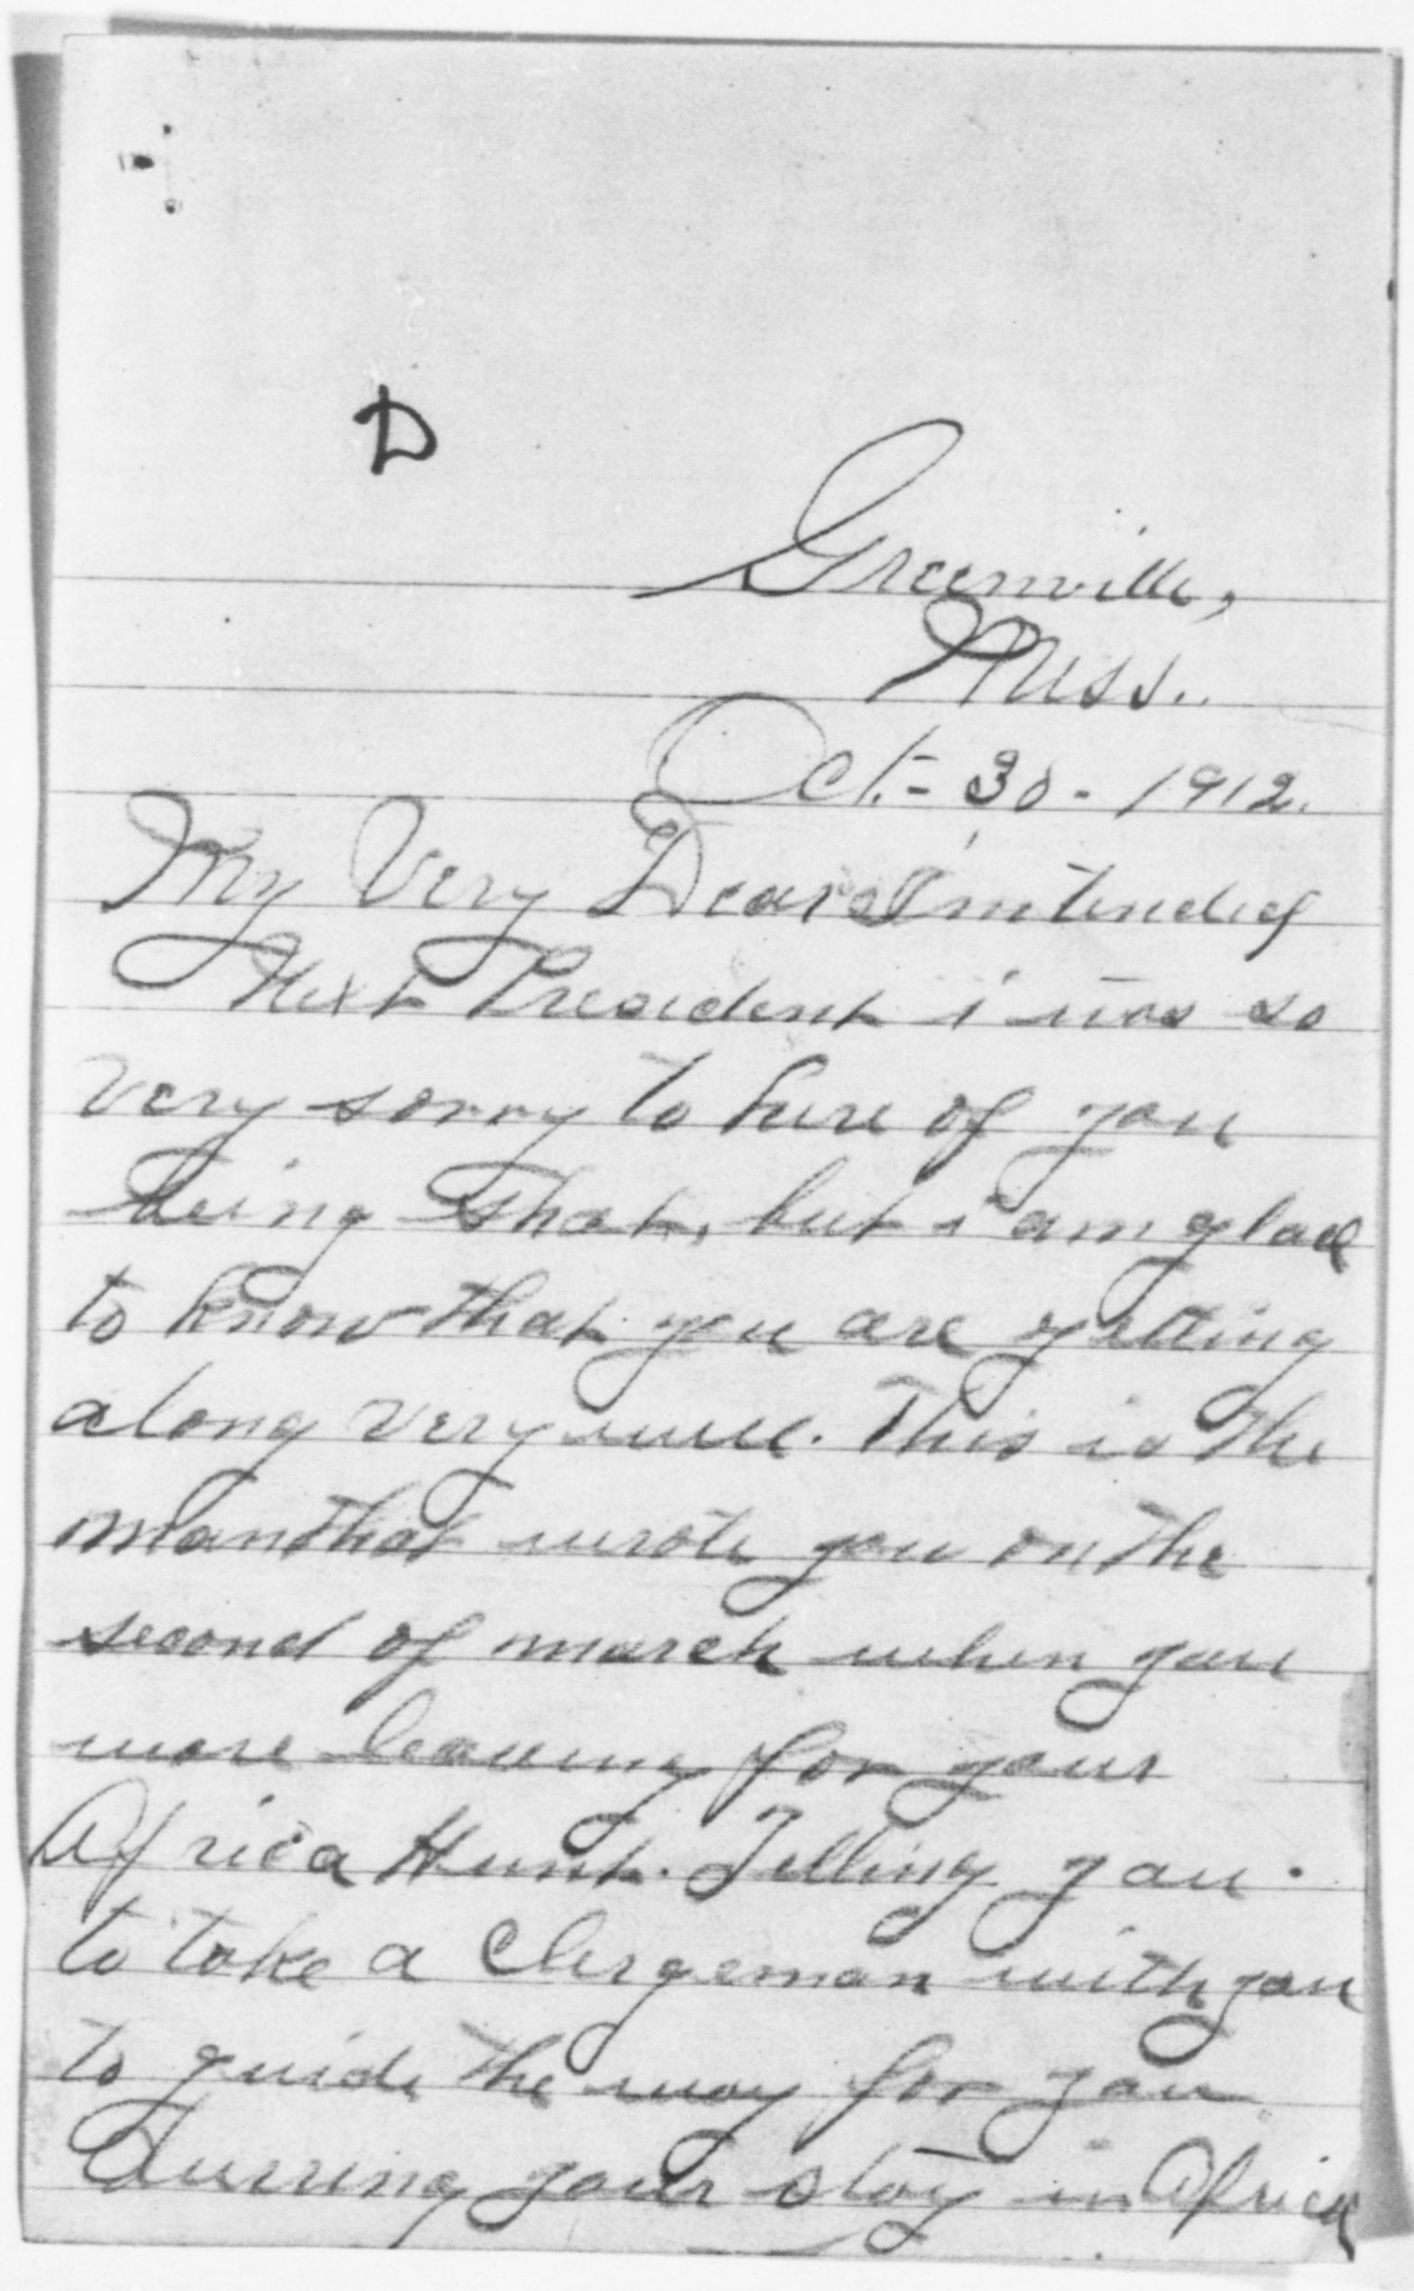 D
Greenville,
Miss.
Oct. - 30 - 1912.
My Very Dear Intended
Next President i was so
very sorry to here of you
being shot, but i am glad
to know that you are getting
along very well. This is the
man that wrote you on the
second of march when you
ware leaving for your
Africa Hunt. Telling you
to take a Clergeman with you
to guide the way for you
durring your stay in Africa